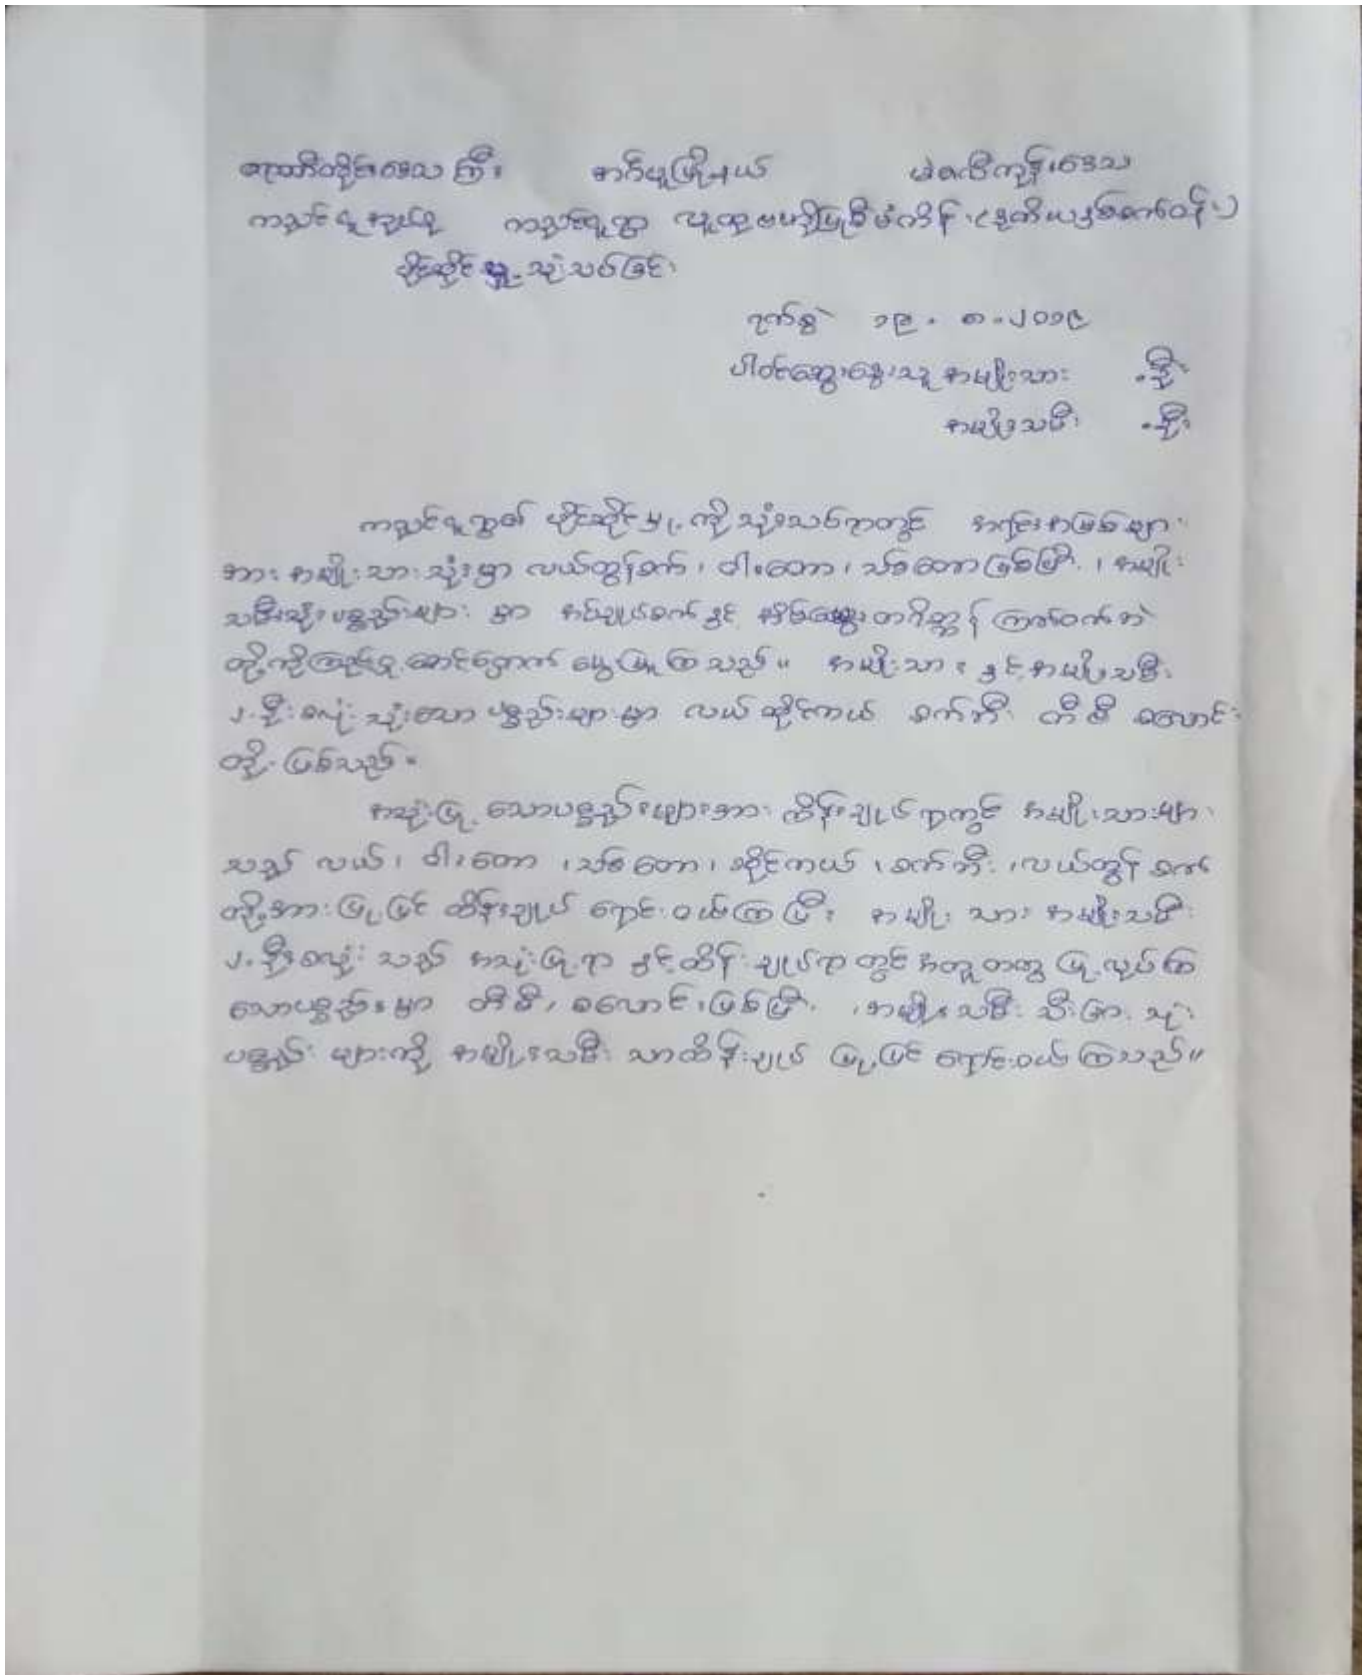 ဧရာဝတီတိုင်းဒေသကြီး ငပုတောမြို့နယ် မဲဇလီကုန်းဒေသ
ကညင်ငူအုပ်စု ကညင်ငူရွာ လူထုဗဟိုပြုစီမံကိန်း (ဒုတိယနှစ်ဝက်ဝန်း)
ပိုင်ဆိုင်မှု့ သုံးသပ်ခြင်း
ရက်စွဲ ၁၉.၈.၂၀၁၉
ပါဝင်ဆွေးနွေးသူ အမျိုးသား - ဦး
အမျိုးသမီး - ဦး
ကညင်ငူရွာ၏ ပိုင်ဆိုင်မှု့ကို သုံးသပ်ရာတွင် အရင်းအမြစ်များ
အား အမျိုးသားသုံးမှာ လယ်ထွန်စက်၊ ဝါးတော၊ သစ်တောဖြစ်ပြီး၊ အမျိုး
သမီးသုံးပစ္စည်းများ မှာ အပ်ချုပ်စက်နှင့် အိမ်မွေးတိရိစ္ဆာန် ကြက်ဝက်ဘဲ
တို့ကိုကြည့်ရှု့စောင့်ရှောက် မွေးမြူကြသည်။ အမျိုးသားနှင့်အမျိုးသမီး
၂.ဦးစလုံး သုံးသောပစ္စည်းများမှာ လယ် ဆိုင်ကယ် စက်ဘီး တီဗီ စလောင်း
တို့ ဖြစ်သည်။
အသုံးပြု့သောပစ္စည်းများအား ထိန်းချုပ်ရာတွင် အမျိုးသားများ
သည် လယ်၊ ဝါးတော၊ သစ်တော၊ ဆိုင်ကယ်၊ စက်ဘီး၊ လယ်ထွန်စက်
တို့အား ပြုပြင် ထိန်းချုပ် ရောင်းဝယ်ကြပြီး အမျိုးသား အမျိုးသမီး
၂.ဦးစလုံး သည် အသုံးပြု့ရာ နှင့်ထိန်းချုပ်ရာတွင် အတူတကွ ပြု့လုပ်ကြ
သောပစ္စည်းမှာ တီဗီ၊ စလောင်းဖြစ်ပြီး၊ အမျိုးသမီး သီးခြား သုံး
ပစ္စည်းများကို အမျိုးသမီး သာထိန်းချုပ် ပြုပြင် ရောင်းဝယ်ကြသည်။